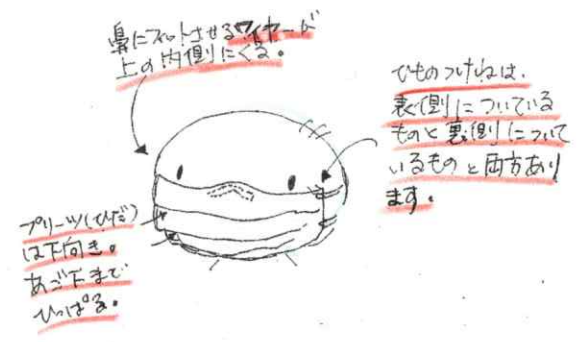 鼻にフィットさせるワイヤーが
上の内側にくる。
ひものつけねは、
表側についている
ものと裏側について
いるものと両方あり
ます。
プリーツ(ひだ)
は下向き。
あご下まで
ひっぱる。